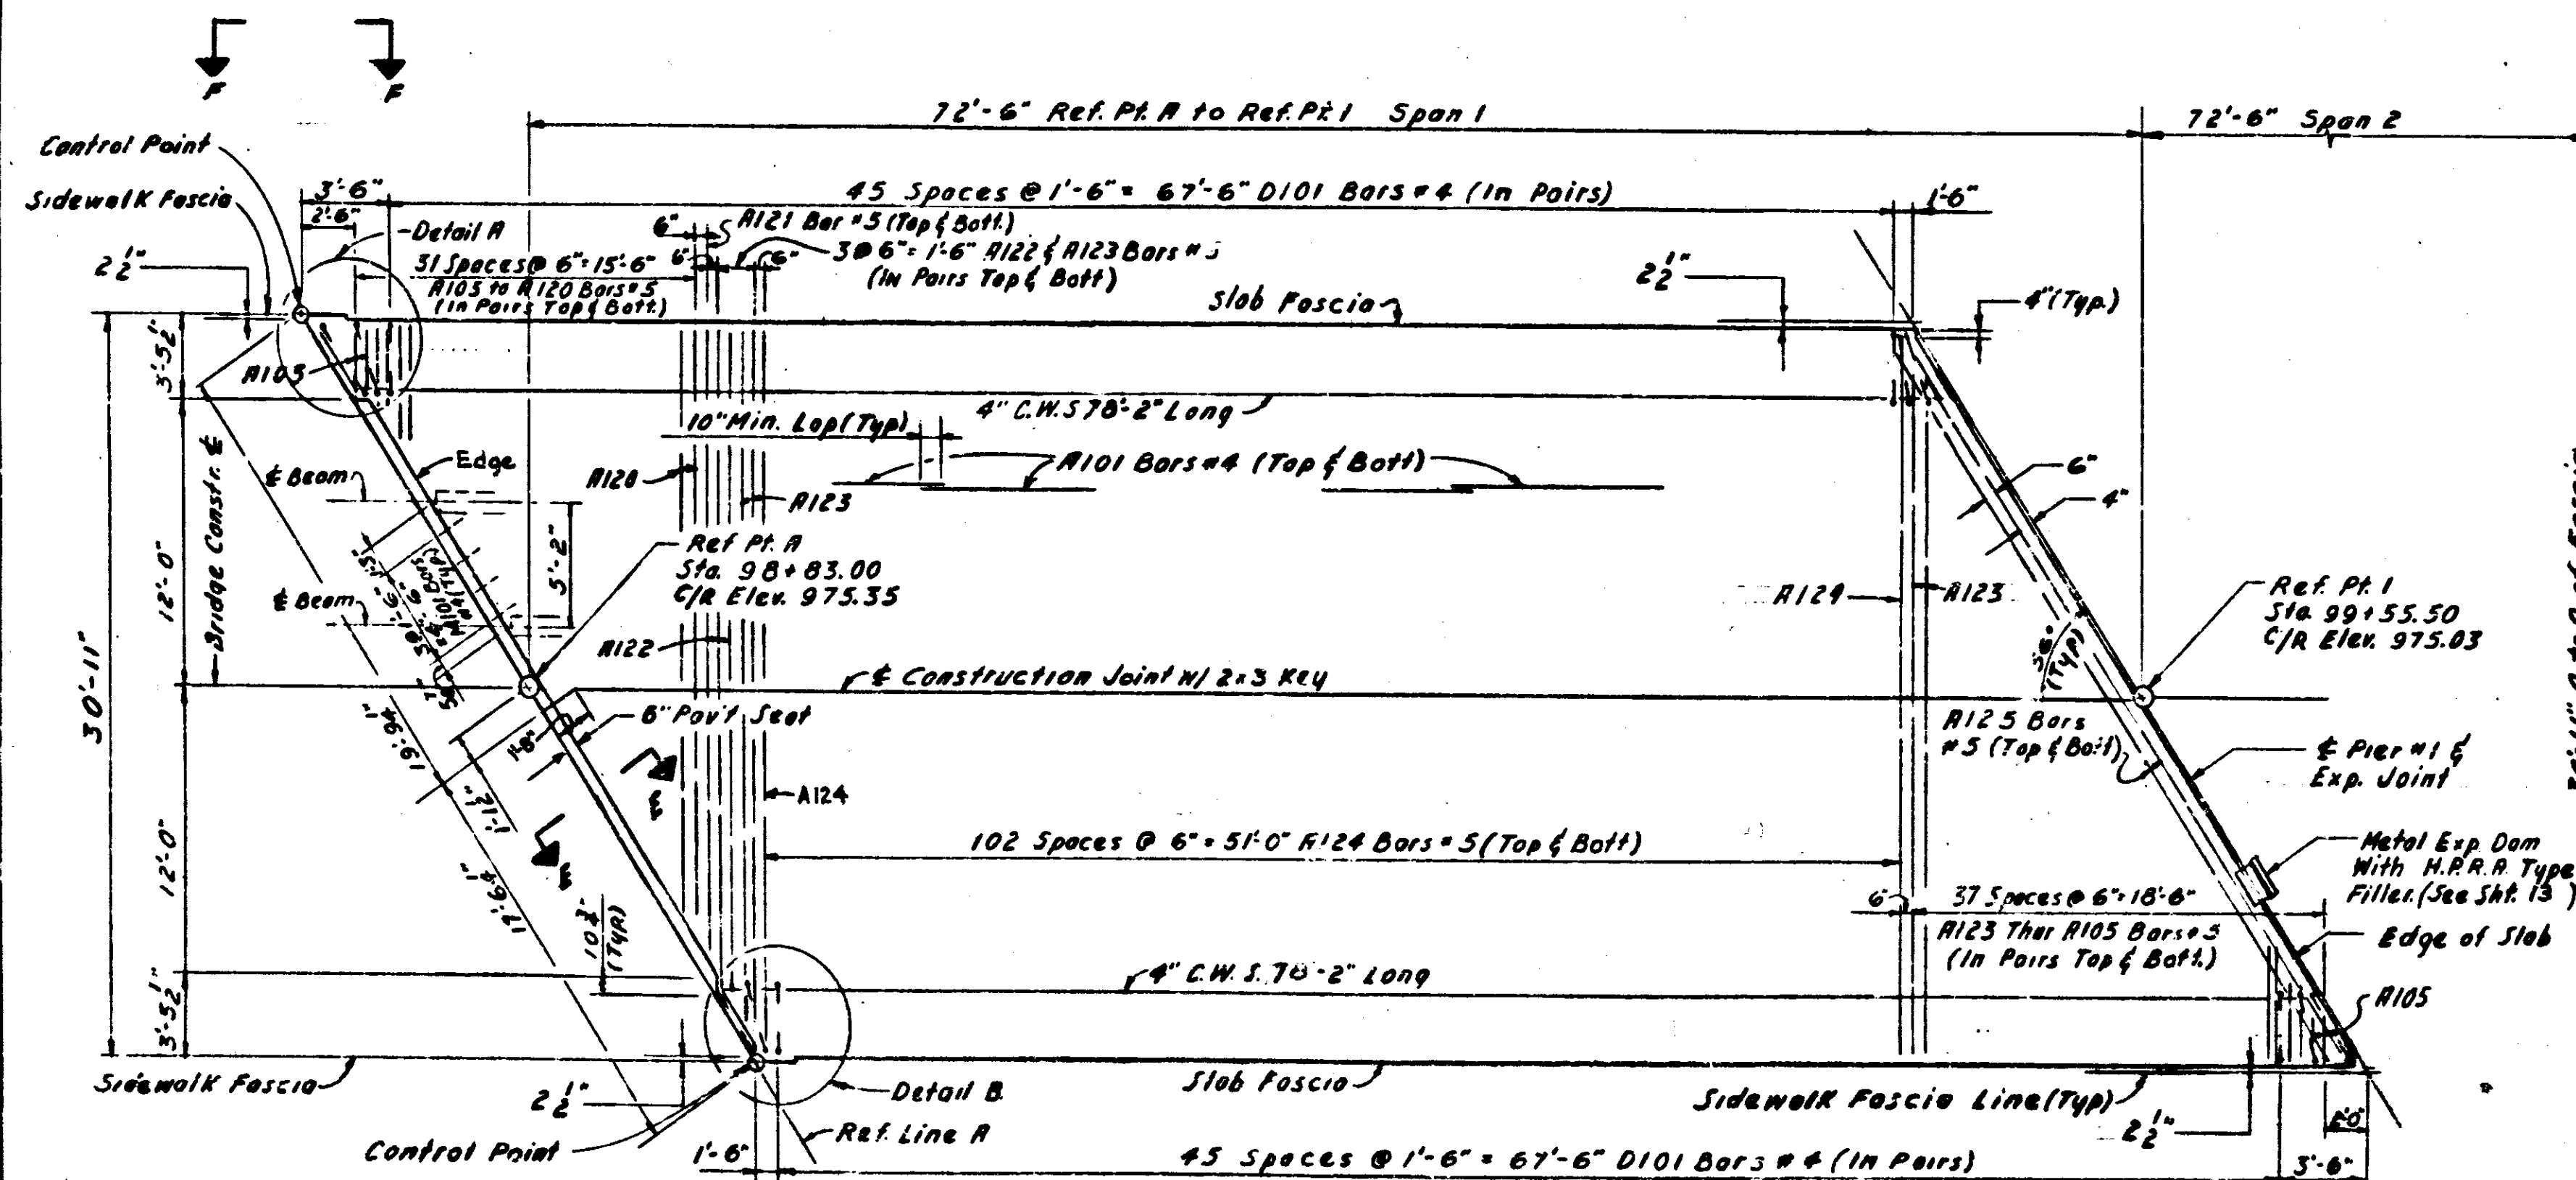 F
F
72'-6" Ref. Pt. A to Ref. Pt. 1 Span 1
72'-6" Span 2
Control Point
Sidewalk Fascia
3'-6"
2'-6"
45 Spaces @ 1'-6" = 67'-6" D101 Bars #4 (In Pairs)
1'-6"
Detail A
6"
A121 Bar #5 (Top & Bott.)
2 1/2"
31 Spaces @ 6" = 15'-6"
A105 to A120 Bars #5
(In Pairs Top & Bott.)
6"
6"
3 @ 6" = 1'-6" A122 & A123 Bars #5
(In Pairs Top & Bott)
2 1/2"
Slab Fascia
4" (Typ.)
3'-5 1/2"
A105
4" C.W.S 78'-2" Long
10" Min. Lap (Typ)
Edge
₵ Beam
A120
A101 Bars #4 (Top & Bott)
A123
6"
4"
Bridge Constr. ₵
12'-0"
5'-2"
Ref Pt. A
Sta. 98+83.00
C/R Elev. 975.35
₵ Beam
M101 Bars
#4 (Typ)
A129
A123
Ref. Pt. 1
Sta 99+55.50
C/R Elev. 975.03
30'-11"
A122
(TYP)
₵ Construction Joint w/ 2x3 Key
6" Pav't Seat
1'-8"
A125 Bars
#5 (Top & Bott)
₵ Pier #1 &
Exp. Joint
19'-9 1/4"
1'-1 1/2"
E
E
A124
12'-0"
102 Spaces @ 6" = 51'-0" A124 Bars #5 (Top & Bott)
Metal Exp Dam
With H.P.R.A. Type
Filler. (See Sht. 13)
17'-6 1/4"
10 3/4"
(TYP)
6"
37 Spaces @ 6" = 18'-6"
A123 Thur A105 Bars #5
(In Pairs Top & Bott.)
Edge of Slab
4" C.W.S. 78'-2" Long
3'-5 1/2"
A105
Sidewalk Fascia
2 1/2"
Detail B
Slab Fascia
Sidewalk Fascia Line (Typ)
2 1/2"
2'-0"
Control Point
Ref. Line A
1'-6"
45 Spaces @ 1'-6" = 67'-6" D101 Bars #4 (In Pairs)
3'-6"